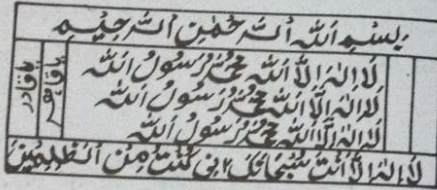 بِسْمِ اللّٰهِ الرَّحْمٰنِ الرَّحِيْمِ
لَا اِلٰهَ اِلَّا اللّٰهُ مُحَمَّدٌ رَّسُوْلُ اللّٰه
لَا اِلٰهَ اِلَّا اللّٰهُ مُحَمَّدٌ رَّسُوْلُ اللّٰه
لَا اِلٰهَ اِلَّا اللّٰهُ مُحَمَّدٌ رَّسُوْلُ اللّٰه
يا قادر
لَا اِلٰهَ اِلَّا اَنْتَ سُبْحَانَكَ اِنِّى كُنْتُ مِنَ الظّٰلِمِيْنَ